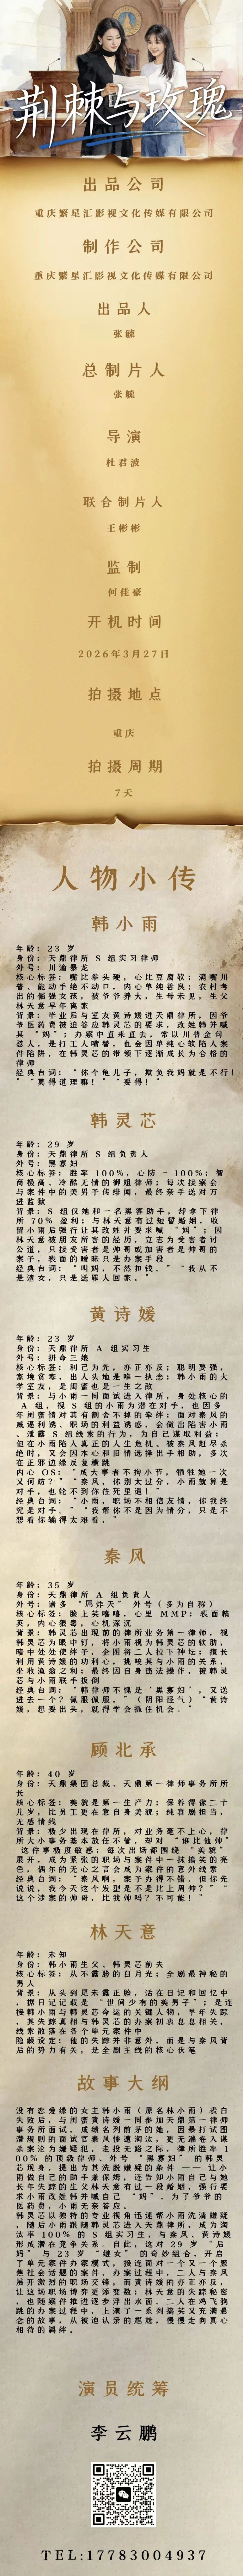 荆棘与玫瑰
出品公司
重庆繁星汇影视文化传媒有限公司
制作公司
重庆繁星汇影视文化传媒有限公司
出品人
张毓
总制片人
张毓
导演
杜君波
联合制片人
王彬彬
监制
何佳豪
开机时间
2026年3月27日
拍摄地点
重庆
拍摄周期
7天
人物小传
韩小雨
年龄：23 岁
身份：天鼎律所 S 组实习律师
外号：川渝暴龙
核心标签：嘴比拳头硬，心比豆腐软；满嘴川
普、能动手绝不动口，内心单纯善良；农村考
出的倔强女孩，被爷爷养大，生母未见，生父
林天意早年离家
背景：毕业后与室友黄诗媛进天鼎律所，因爷
爷医药费被迫答应韩灵芯的要求，改姓韩并喊
其 “妈”；办案中直来直去，常以川普金句
怼人，是打工人嘴替，也会因单纯心软陷入案
件陷阱，在韩灵芯的带领下逐渐成长为合格的
律师
经典台词：“你个龟儿子，欺负我妈就是不行！
” “莫得道理嘛！” “要得！”
韩灵芯
年龄：29 岁
身份：天鼎律所 S 组负责人
外号：黑寡妇
核心标签：胜率 100%，心防 - 100%；智
商极高、冷酷无情的御姐律师；每次接案会
与案件中的美男子传绯闻，最终亲手送对方
进监狱
背景：S 组仅她和一名黑客助手，却拿下律
所 70% 盈利；与林天意有过短暂婚姻，收
留小雨后强行让其改姓并要求喊 “妈”；因
林天意被朋友所害的经历，立志为受害者讨
公道，只接受害者是帅哥或加害者是帅哥的
案子，表面的暧昧只是办案手段
经典台词：“叫妈，不然扣钱。” “我从不
是渣女，只是送罪人回家。”
黄诗媛
年龄：23 岁
身份：天鼎律所 A 组实习生
外号：拼命三娘
核心标签：利己为先，亦正亦反；聪明要强，
家境贫寒，出人头地是唯一执念；韩小雨的大
学室友，是闺蜜也是一生之敌
背景：与小雨一同面试进入律所，身处核心的
A 组，视 S 组的小雨为潜在对手，也因多
年闺蜜情对其有割舍不掉的牵绊；面对秦风的
威逼利诱、职场的利益诱惑，会做出陷害小雨
、泄露 S 组线索的行为，为自己谋取利益；
但在小雨陷入真正的人生危机、被秦风赶尽杀
绝时，又会因本心和旧情选择出手相助，多次
在正邪边缘反复横跳
内心 OS：“成大事者不拘小节，牺牲她一次
又何妨？” “秦风，你别太过分，小雨就算是
对手，也轮不到你往死里逼！”
经典台词：“小雨，职场不相信友情，你我终
究是对手。” “我帮你不是因为情分，只是不
想看你输得太难看。”
秦风
年龄：35 岁
身份：天鼎律所 A 组负责人
外号：诸多 “屌炸天” 外号（多为自称）
核心标签：脸上笑嘻嘻，心里 MMP；表面精
英，内心狠毒，心机深沉
背景：韩灵芯出现前的律所业务第一律师，视
韩灵芯为眼中钉，将小雨视为韩灵芯的软肋，
暗中处处使绊子，企图将二人拉下神坛；擅长
利用黄诗媛的功利心，挑唆其与小雨的关系，
坐收渔翁之利；最终因自身违法操作，被韩灵
芯与小雨联手扳倒
经典台词：“韩律师不愧是 ‘黑寡妇’，又送
进去一个？佩服佩服。”（阴阳怪气）“黄诗
媛，想要出头，就得学会抓住机会。”
顾北承
年龄：40 岁
身份：天鼎集团总裁、天鼎第一律师事务所所
长
核心标签：美貌是第一生产力；保养得像二十
几岁，比员工更在意自身美貌，纯喜剧担当，
无感情线
背景：极少出现在律所，对业务毫不上心，律
所大小事务基本放任不管，却对 “谁比他帅”
这件事极度敏感；每次出场都围绕 “美貌”
展开，成为紧张的职场与案件中一抹搞笑的亮
色，偶尔的无心之言会成为案件的意外线索
经典台词：“秦风啊，案子办得不错，但你先
说说，我今天这个发型是不是比上周帅？” “
这个涉案的帅哥，比我帅吗？不可能！”
林天意
年龄：未知
身份：韩小雨生父、韩灵芯前夫
核心标签：从不露脸的白月光；全剧最神秘的
男人
背景：从头到尾未露正脸，活在日记和回忆中
，据日记记载是 “世间少有的美男子”；是连
接韩小雨与韩灵芯命运的关键人物，早年失踪
，其失踪真相与韩灵芯的办案初衷息息相关，
线索散落在各个单元案件中
隐藏设定：他的失踪并非意外，而是与秦风背
后的势力有关，是全剧主线的核心伏笔
故事大纲
没有恋爱缘的女主韩小雨（原名林小雨）表白
失败后，与闺蜜黄诗媛一同参加天鼎第一律师
事务所面试，成绩名列前茅的她，因暴打试图
潜规则的面试官秦风惨遭淘汰，更无端卷入谋
杀案沦为嫌疑犯。走投无路之际，律所胜率 1
00% 的顶级律师、外号 “黑寡妇” 的韩灵
芯现身，提出为其洗脱嫌疑的条件 —— 让小
雨做自己的助手兼保姆，还告知小雨自己与她
长年失踪的生父林天意有过一段婚姻，强行要
求小雨改姓韩并喊自己 “妈”。为了爷爷的
医药费，小雨无奈答应。
韩灵芯以雄特的专业视角迅速帮小雨洗清嫌疑
，随后小雨跟随韩灵芯进入天鼎律所，成为淘
汰率 100% 的 S 组实习生，与秦风、黄诗媛
形成潜在竞争关系。自此，这对 29 岁 “后
妈” 与 23 岁 “继女” 的奇妙组合，开启
了单元案件办案模式，接连面对一个又一个聚
焦社会话题的案件。办案过程中，二人与秦风
展开激烈的职场交锋，而黄诗媛的亦正亦反，
让这场职场博弈更添变数；林天意的失踪秘密
，也随案件推进逐步浮出水面。二人在鸡飞狗
跳的办案过程中，上演了一系列搞笑又充满悬
念的故事，从被迫认亲的尴尬，慢慢走向真心
相待的羁绊。
演员统筹
李云鹏
TEL:17783004937